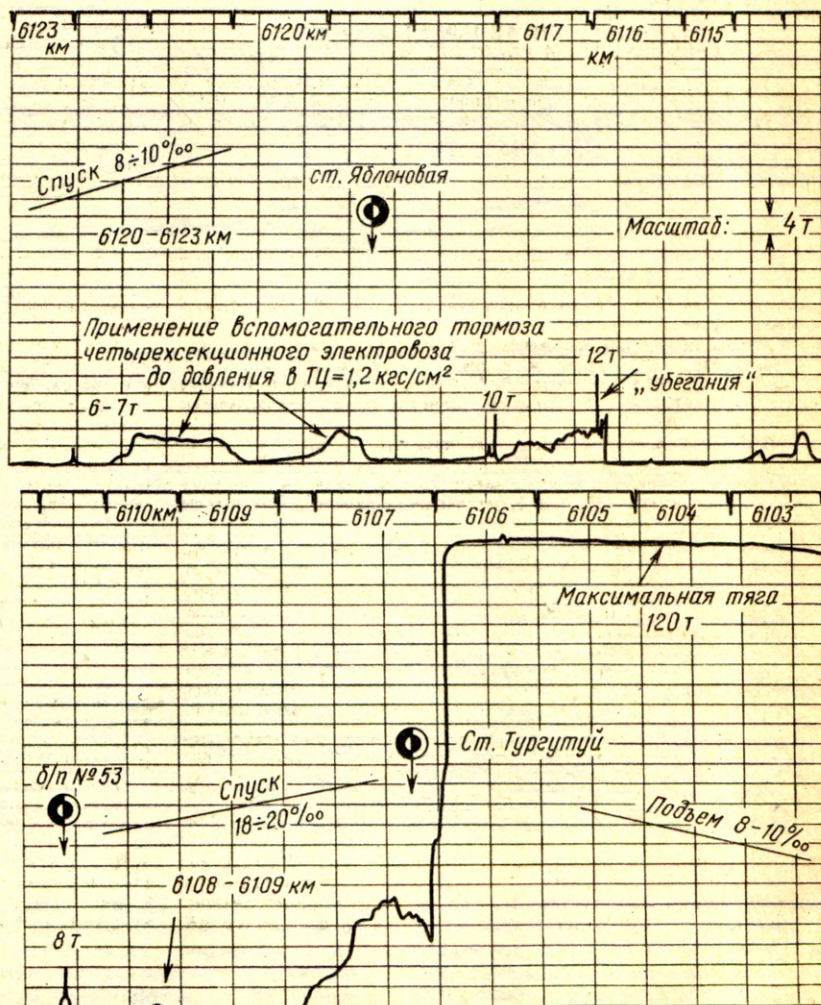 6123
км
6120 км
6117
км
6116
6115
Спуск 8÷10°/₀₀
ст. Яблоновая
6120-6123 км
Масштаб:
4 т
Применение вспомогательного тормоза
четырехсекционного электровоза
до давления в ТЦ=1,2 кгс/см²
6-7т
10 т
12т
„Убегания“
6110км
6109
6107
6106
6105
6104
6103
Максимальная тяга
120 т
б/п №53
Ст. Тургутуй
Спуск
18÷20°/₀₀
Подъем 8-10°/₀₀
6108-6109 км
8 т